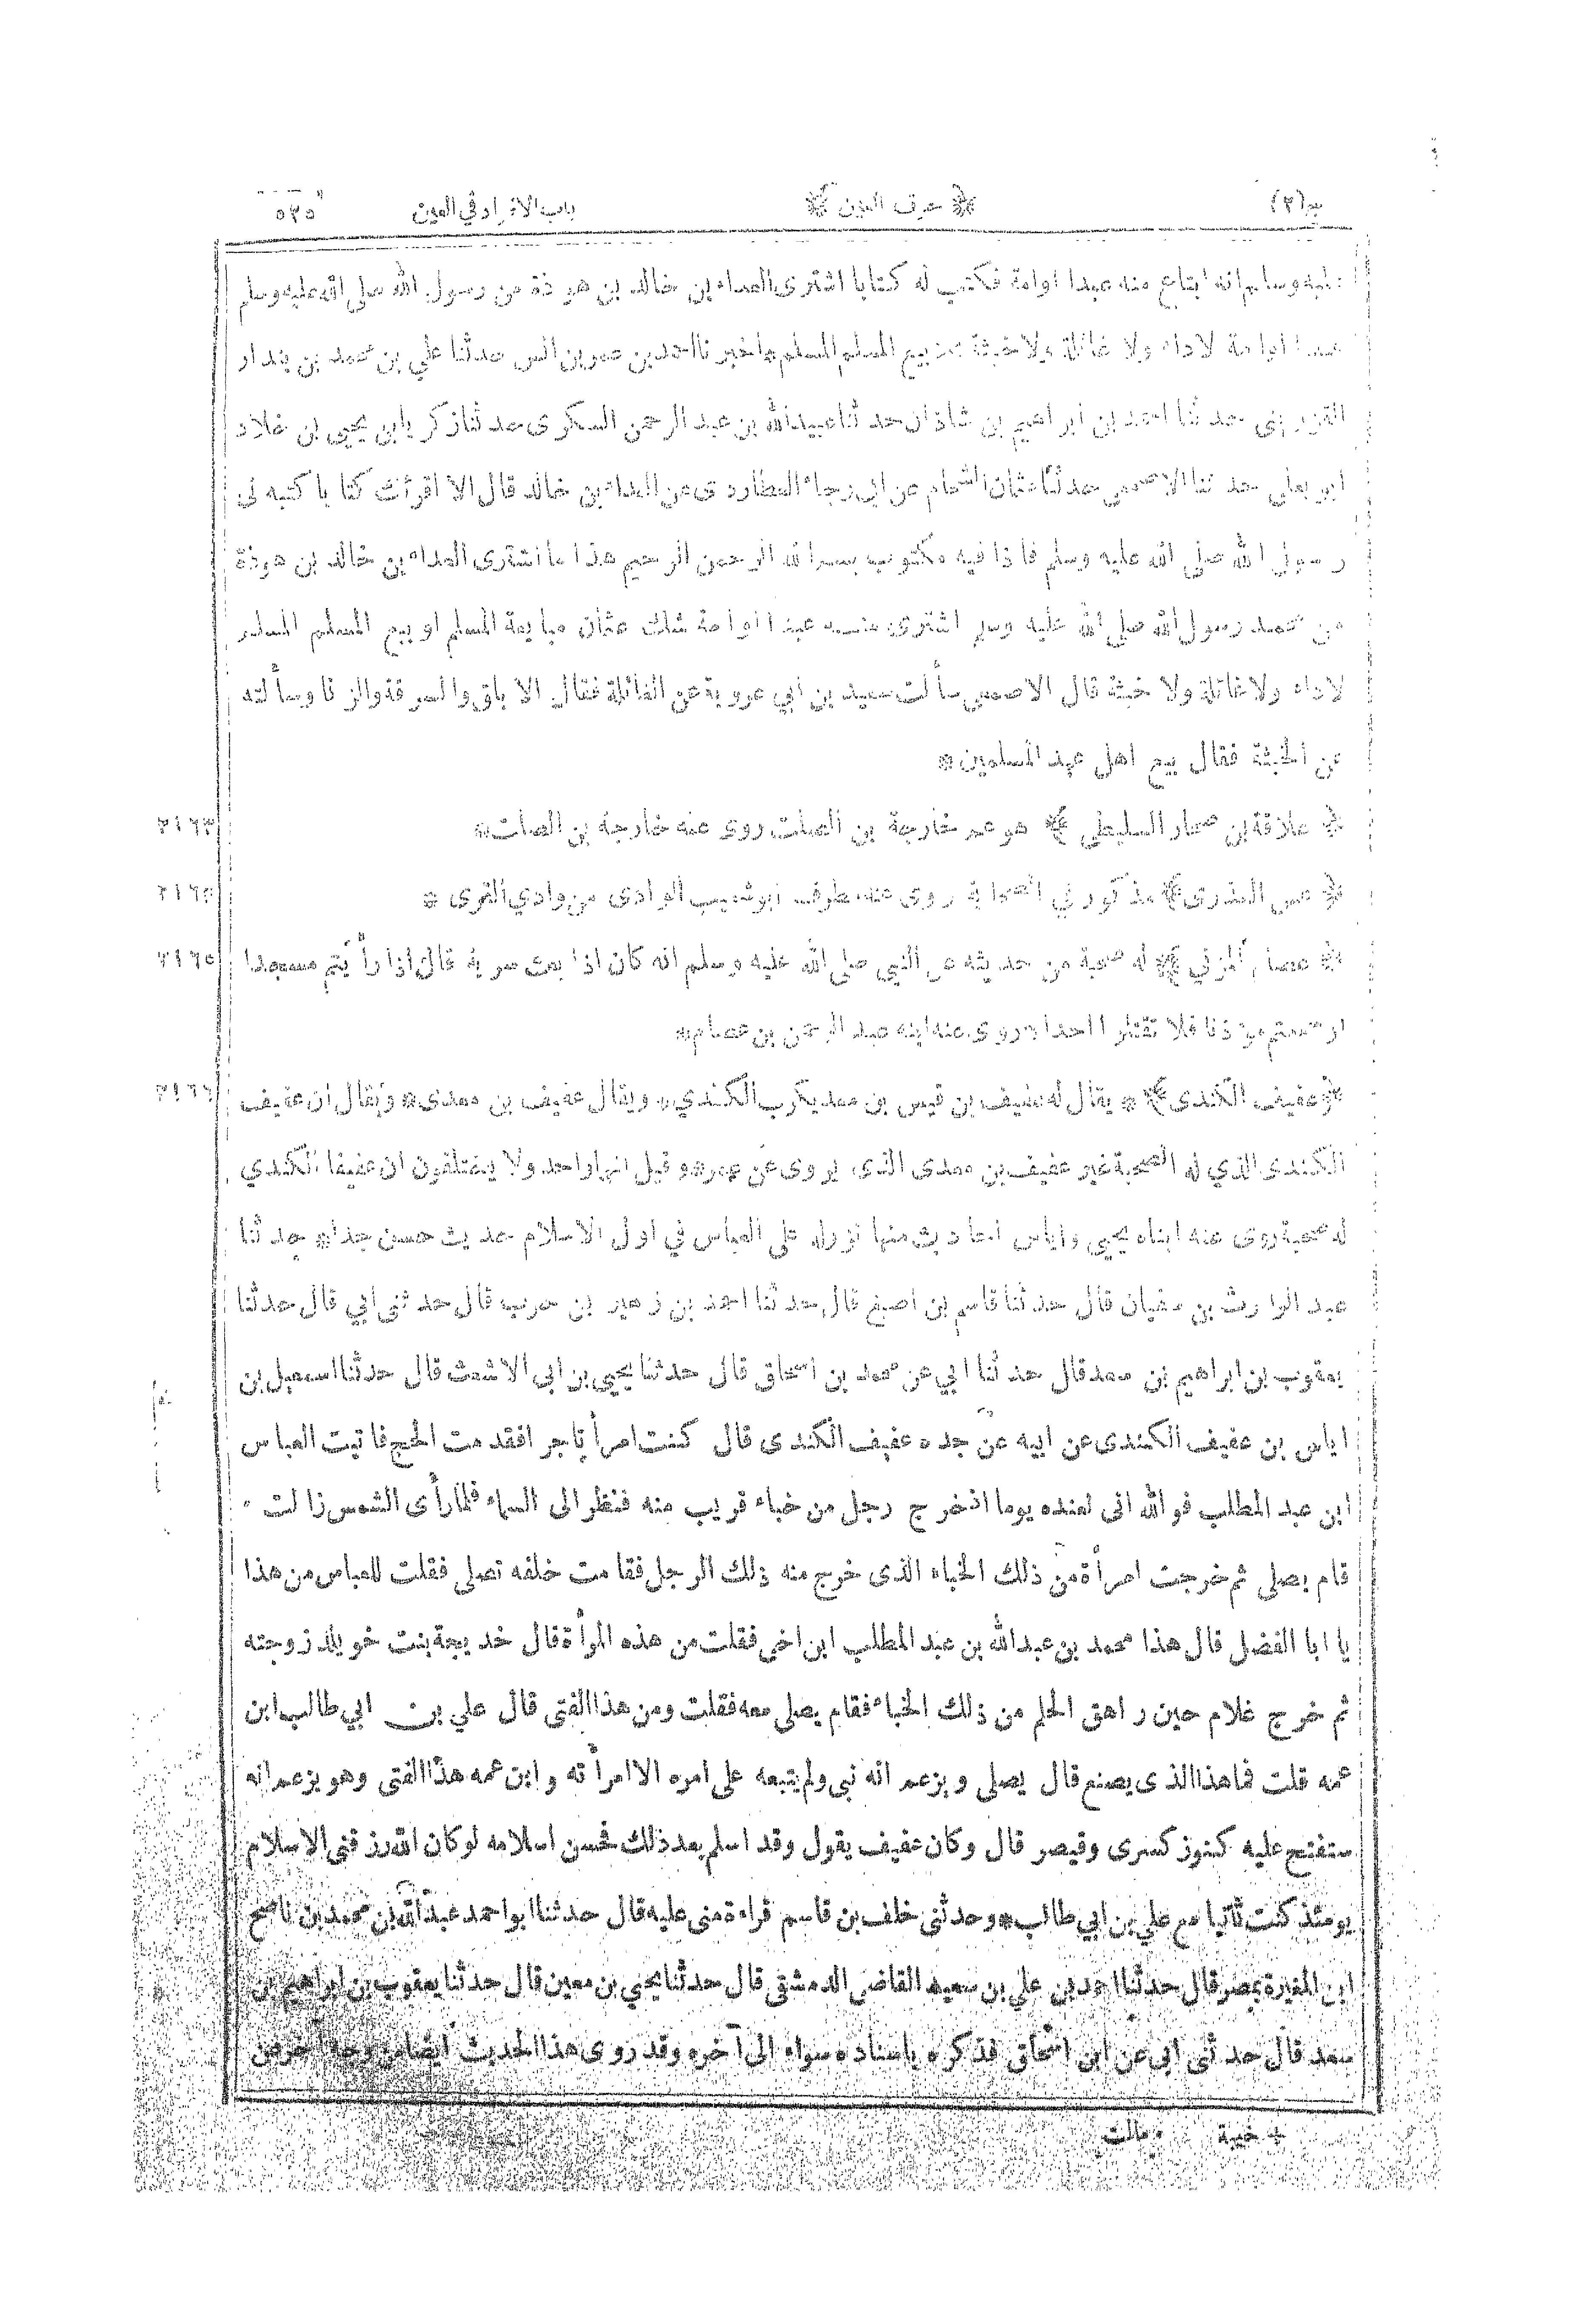 ج(٢) ﴿ حرف العين ﴾ باب الافراد في العين ٥٢٥
عليه وسلم انه ابتاع منه عبدا اوامة فكتب له كتابا اشترى العداء بن خالد بن هوذة من رسول الله صلى الله عليه وسلم
عبدا اوامة لاداء ولا غائلة ولا خبثة بيع المسلم المسلم * اخبرنا احمد بن عمر بن انس حدثنا علي بن محمد بن بندار
القزويني حدثنا احمد بن ابراهيم بن شاذان حدثنا عبيدالله بن عبد الرحمن السكرى حدثنا زكريا بن يحيى بن خلاد
ابو يعلى حدثنا الاصمعي حدثنا عثمان الشحام عن ابي رجاء العطاردى عن العداء بن خالد قال الا اقرأك كتابا كتبه لى
رسول الله صلى الله عليه وسلم فاذا فيه مكتوب بسم الله الرحمن الرحيم هذا ما اشترى العداء بن خالد بن هوذة
من محمد رسول الله صلى الله عليه وسلم اشترى منه عبدا اوامة شك عثمان مبايعة المسلم او بيع المسلم المسلم
لاداء ولا غائلة ولا خبثة قال الاصمعي سألت سعيد بن ابي عروبة عن الغائلة فقال الاباق والسرقة والزنا وسألته
عن الخبثة فقال بيع اهل عهد المسلمين *
﴿ علاقة بن صحار السليطي ﴾ هو عم خارجة بن الصلت روى عنه خارجة بن الصلت * ٢١٦٣
﴿ عس العذرى ﴾ مذكور في الصحابة روى عنه مطرف ابو شعيب الوادى من وادي القرى * ٢١٦٤
﴿ عصام المزني ﴾ له صحبة من حديثه عن النبي صلى الله عليه وسلم انه كان اذا بعث سرية قال اذا رأيتم مسجدا ٢١٦٥
او سمعتم مؤذنا فلا تقتلوا احدا * روى عنه ابنه عبد الرحمن بن عصام *
﴿ عفيف الكندى ﴾ * يقال له عفيف بن قيس بن معديكرب الكندي * ويقال عفيف بن معدى * ويقال ان عفيف ٢١٦٦
الكندى الذي له الصحبة غير عفيف بن معدى الذى يروى عن عمر * وقيل انهما واحد ولا يختلفون ان عفيفا الكندي
له صحبة روى عنه ابناه يحيى واياس احاديث منها نزوله على العباس في اول الاسلام حديث حسن جدا * حدثنا
عبد الوارث بن سفيان قال حدثنا قاسم بن اصبغ قال حدثنا احمد بن زهير بن حرب قال حدثنى ابي قال حدثنا
يعقوب بن ابراهيم بن سعد قال حدثنا ابي عن محمد بن اسحاق قال حدثنا يحيى بن ابى الاشعث قال حدثنا اسمعيل بن
اياس بن عفيف الكندى عن ابيه عن جده عفيف الكندى قال كنت امرأ تاجرا فقدمت الحج فاتيت العباس
ابن عبد المطلب فوالله انى لعنده يوما اذ خرج رجل من خباء قريب منه فنظر الى السماء فلما رأى الشمس زالت
قام يصلى ثم خرجت امرأة من ذلك الخباء الذى خرج منه ذلك الرجل فقامت خلفه تصلى فقلت للعباس من هذا
يا ابا الفضل قال هذا محمد بن عبدالله بن عبد المطلب ابن اخى فقلت من هذه المرأة قال خديجة بنت خويلد زوجته
ثم خرج غلام حين راهق الحلم من ذلك الخباء فقام يصلى معه فقلت ومن هذا الفتى قال علي بن ابي طالب ابن
عمه قلت فما هذا الذى يصنع قال يصلى ويزعم انه نبى ولم يتبعه على امره الا امرأته وابن عمه هذا الفتى وهو يزعم انه
ستفتح عليه كنوز كسرى وقيصر قال وكان عفيف يقول وقد اسلم بعد ذلك فحسن اسلامه لو كان الله رزقنى الاسلام
يومئذ كنت ثانيا مع علي بن ابي طالب * وحدثنى خلف بن قاسم قراءة منى عليه قال حدثنا ابو احمد عبدالله بن محمد بن ناصح
ابن المغيرة بمصر قال حدثنا احمد بن علي بن سعيد القاضى الدمشقى قال حدثنا يحيى بن معين قال حدثنا يعقوب بن ابراهيم بن
سعد قال حدثنى ابى عن ابن اسحاق فذكره باسناده سواء الى آخره وقد روى هذا الحديث ايضا من وجه آخر من
خيبة مالت